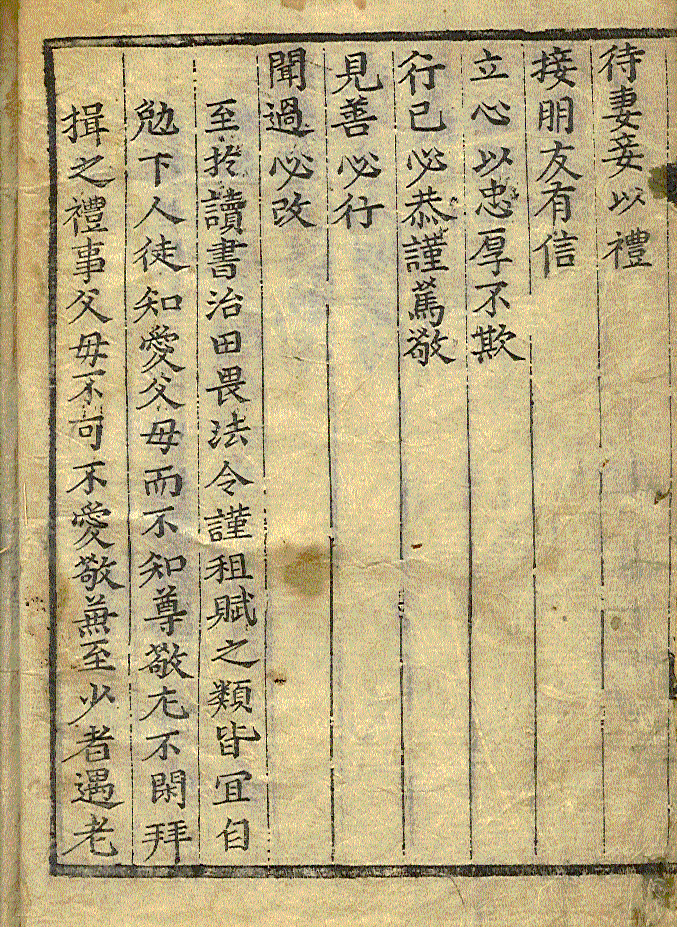 待妻妾以禮
接朋友有信
立心以忠厚不欺
行己必恭謹篤敬
見善必行
聞過必改
至於讀書治田畏法令謹租賦之類皆冝自
勉下人徒知愛父母而不知尊敬尢不閑拜
揖之禮事父母不可不愛敬兼至少者遇老